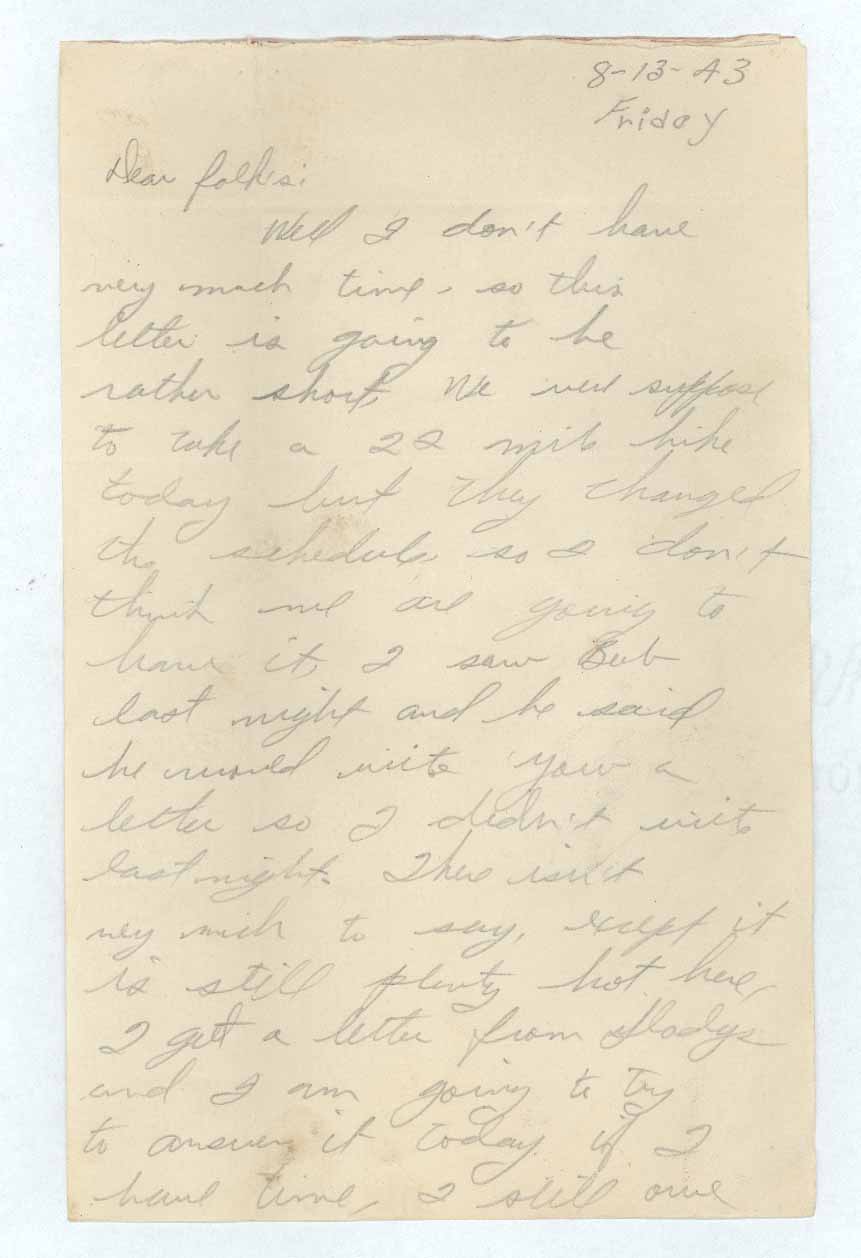 8-13-43
Friday
Dear folk's:
Well I don't have
very much time, so this
letter is going to be
rather short. We were suppose
to take a 22 mile hike
today but they changed
the schedule so I don't
think we are going to
have it, I saw Bub
last night and he said
he would write you a
letter so I didn't write
last night. There isn't
very much to say, except it
is still plenty hot here,
I got a letter from Gladys
and I am going to try
to answer it today if I
have time, I still owe